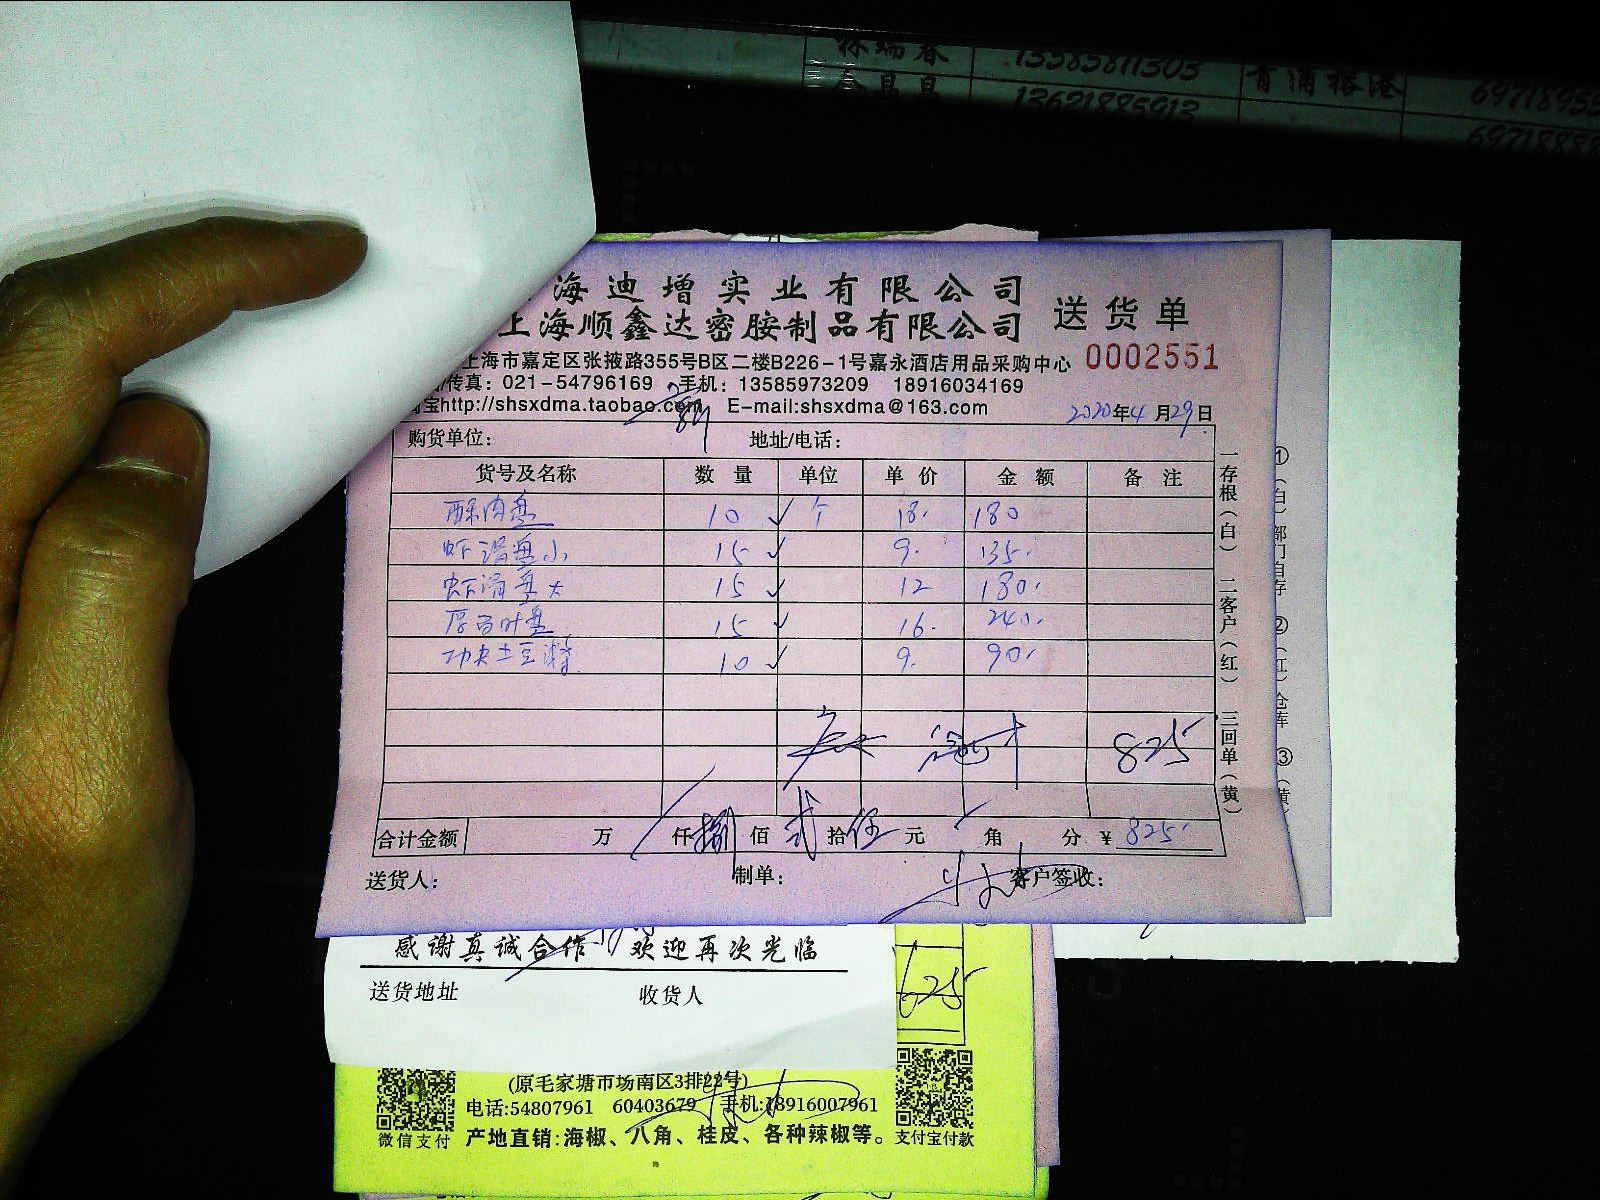 林瑞春 13585811303 青浦稽港 6971895
13621885913
6971888
海迪增实业有限公司
上海顺鑫达密胺制品有限公司 送货单
上海市嘉定区张掖路355号B区二楼B226-1号嘉永酒店用品采购中心 0002551
传真：021-54796169 手机：13585973209 18916034169
宝http://shsxdma.taobao.com E-mail:shsxdma@163.com 2020年4月29日
购货单位： 地址/电话：
货号及名称 数量 单位 单价 金额 备注
酥肉盘 10 ✓ 个 18. 180
虾滑盘小 15 ✓ 9. 135.
虾滑盘大 15 ✓ 12 180.
厚百叶盘 15 ✓ 16. 240.
功夫土豆 10 ✓ 9. 90.
825
合计金额 万 仟捌佰贰拾伍元 角 分 ¥825.
送货人： 制单： 客户签收：
一存根（白） 二客户（红） 三回单（黄）
①（白）部门自存 ②（红）仓库 ③（黄
感谢真诚合作 欢迎再次光临
送货地址 收货人
625
(原毛家塘市场南区3排22号)
电话:54807961 60403679 手机:18916007961
微信支付 产地直销:海椒、八角、桂皮、各种辣椒等。 支付宝付款